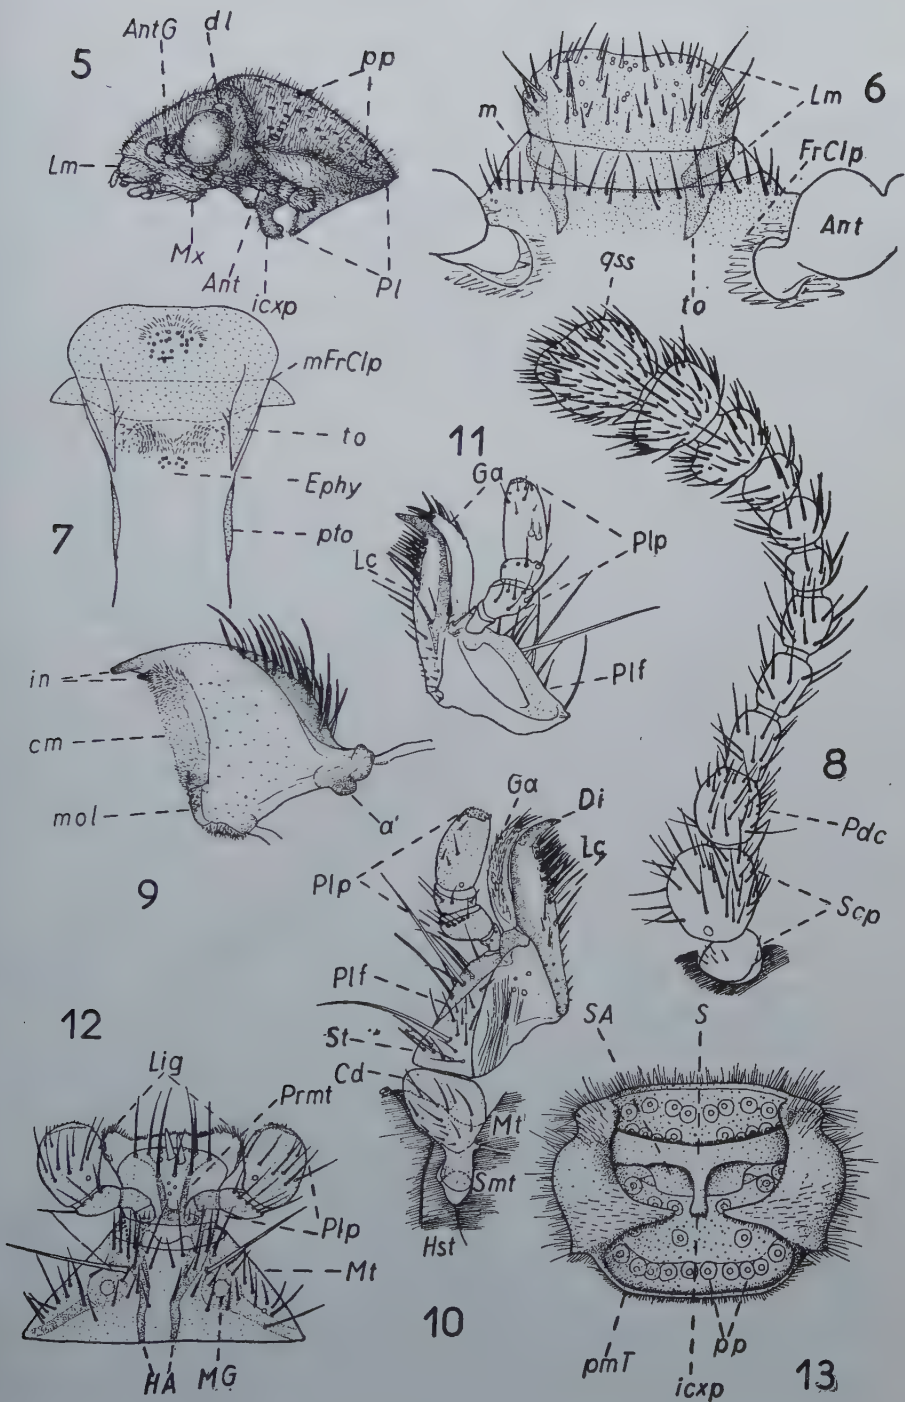 AntG
dl
5
pp
Lm
Mx
Ant
icxp
Pl
6
Lm
m
FrClp
Ant
to
qss
mFrClp
to
Ephy
pto
7
11
Ga
Plp
Lc
Plf
8
Pdc
Scp
in
cm
mol
a'
9
Ga
Di
Lc
Plp
Plf
St
Cd
Mt
Smt
Hst
10
12
Lig
Prmt
Plp
Mt
HA
MG
SA
S
pmT
pp
icxp
13